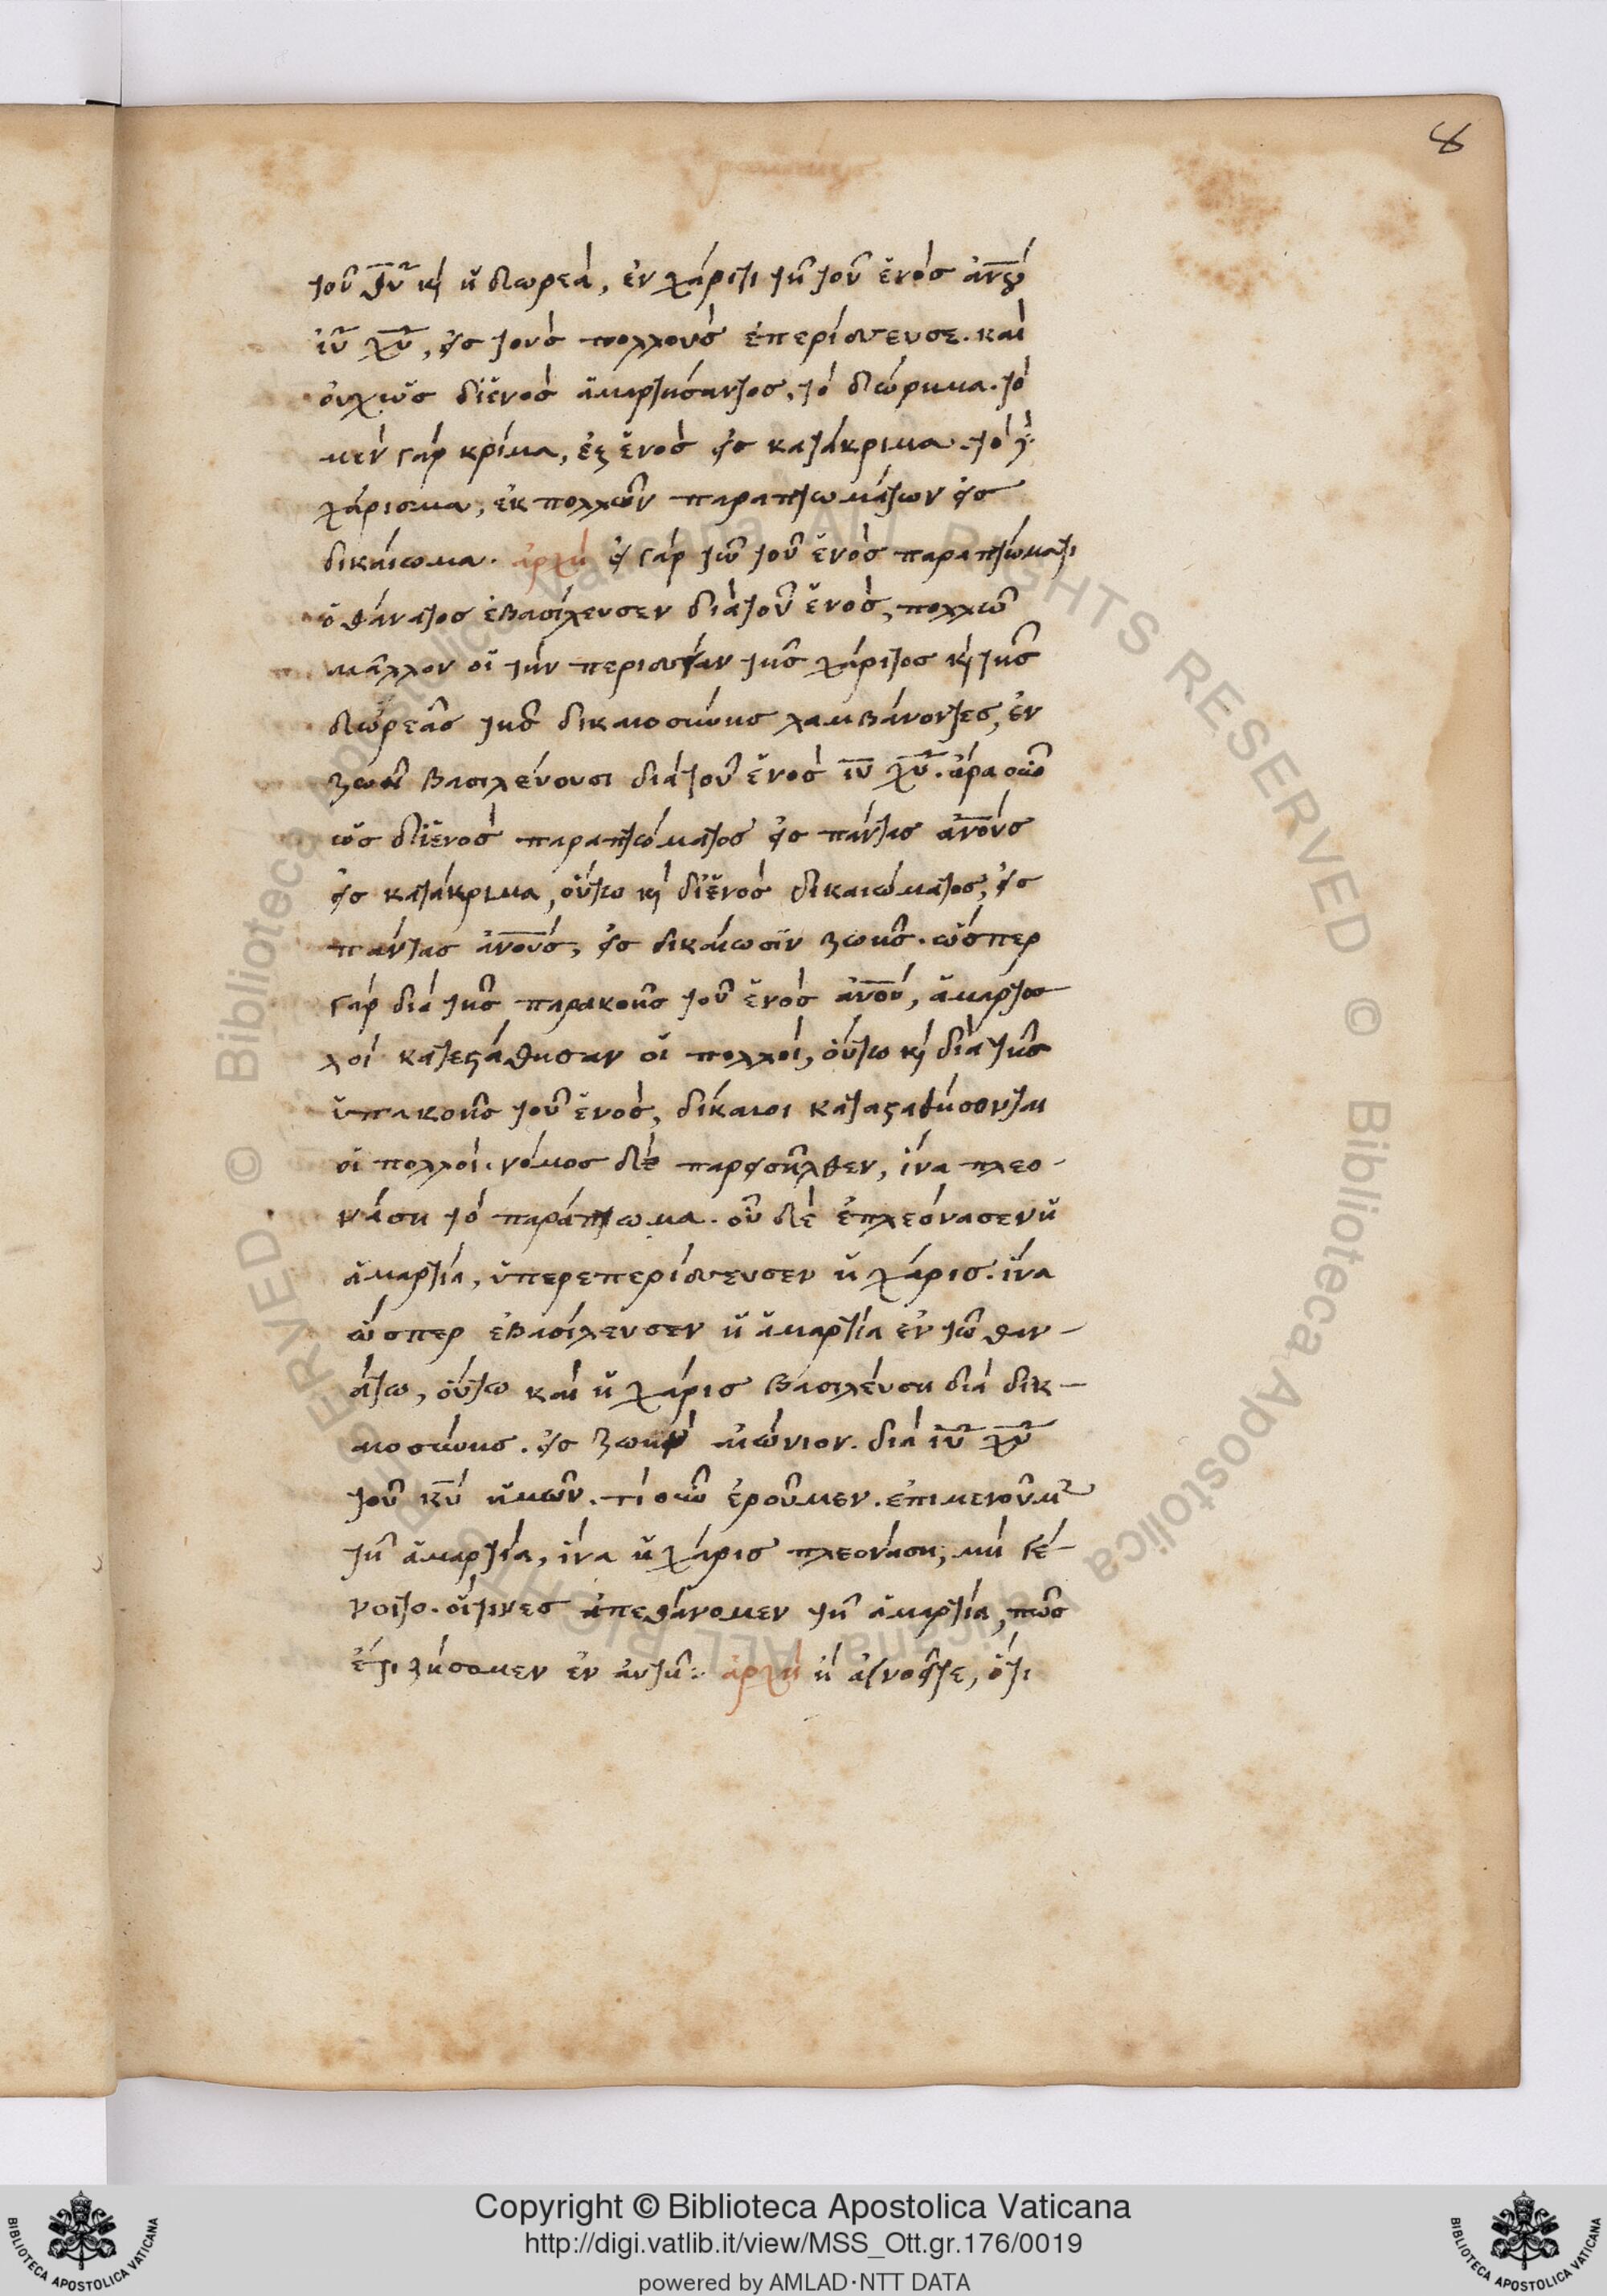 8
τοῦ θ̅υ̅ κὶ ἡ δωρεὰ, ἐν χάριτι τῆ τοῦ ἑνὸς ἀν̅ο̅υ̅
ἰ̅υ̅ χ̅υ̅, εἰς τοὺς πολλοὺς ἐπερίσσευσε. καὶ
οὐχ ὡς δι' ἑνὸς ἁμαρτήσαντος, τὸ δώρημα. τὸ
μὲν γὰρ κρίμα, ἐξ ἑνὸς εἰς κατάκριμα. τὸ δὲ
χάρισμα, ἐκ πολλῶν παραπτωμάτων εἰς
δικαίωμα. ἀρχὴ εἰ γὰρ τῶ τοῦ ἑνὸς παραπτώματι
ὁ θάνατος ἐβασίλευσεν διὰ τοῦ ἑνὸς, πολλῶ
μᾶλλον οἱ τὴν περισσείαν τῆς χάριτος κὶ τῆς
δωρεᾶς τῆς δικαιοσύνης λαμβάνοντες, ἐν
ζωῆ βασιλεύουσι διὰ τοῦ ἑνὸς ἰ̅υ̅ χ̅υ̅. ἄρα οὖν
ὡς δι' ἑνὸς παραπτώματος εἰς πάντας ἀν̅ο̅υ̅ς
εἰς κατάκριμα, οὕτω κὶ δι' ἑνὸς δικαιώματος, εἰς
πάντας ἀν̅ο̅υ̅ς, εἰς δικαίωσιν ζωῆς. ὥσπερ
γὰρ διὰ τῆς παρακοῆς τοῦ ἑνὸς ἀν̅ο̅υ̅, ἁμαρτω
λοὶ κατεστάθησαν οἱ πολλοὶ, οὕτω κὶ διὰ τῆς
ὑπακοῆς τοῦ ἑνὸς, δίκαιοι κατασταθήσονται
οἱ πολλοὶ. νόμος δὲ παρεισῆλθεν, ἵνα πλεο-
νάση τὸ παράπτωμα. οὗ δὲ ἐπλεόνασεν ἡ
ἁμαρτία, ὑπερεπερίσσευσεν ἡ χάρις. ἵνα
ὥσπερ ἐβασίλευσεν ἡ ἁμαρτία ἐν τῶ θαν-
άτω, οὕτω καὶ ἡ χάρις βασιλεύση διὰ δικ-
αιοσύνης. εἰς ζωὴν αἰώνιον. διὰ ἰ̅υ̅ χ̅υ̅
τοῦ κ̅υ̅ ἡμῶν. τί οὖν ἐροῦμεν. ἐπιμενοῦμ
τῆ ἁμαρτία, ἵνα ἡ χάρις πλεονάση, μὴ γέ-
νοιτο. οἵτινες ἀπεθάνομεν τῆ ἁμαρτία, πῶς
ἔτι ζήσομεν ἐν αὐτῆ: ἀρχὴ ἢ ἀγνοεῖτε, ὅτι
Copyright © Biblioteca Apostolica Vaticana
http://digi.vatlib.it/view/MSS_Ott.gr.176/0019
powered by AMLAD·NTT DATA
BIBLIOTECA APOSTOLICA VATICANA
BIBLIOTECA APOSTOLICA VATICANA